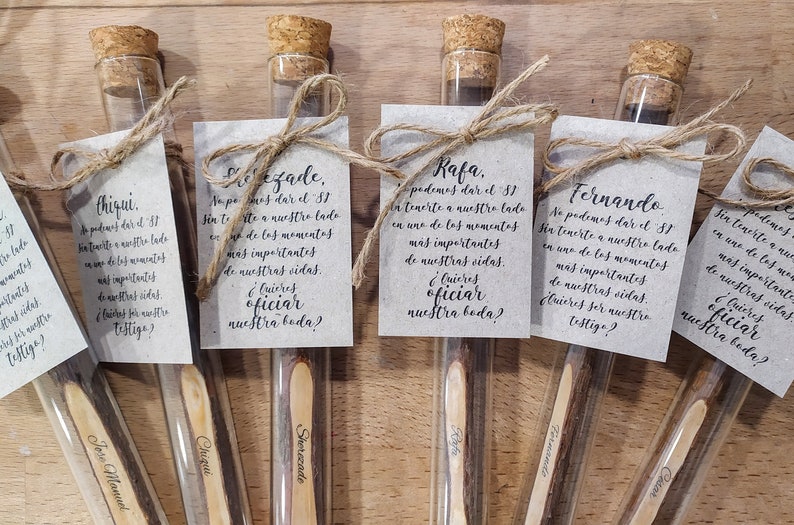 momentos
importantes
vidas.
nuestro
testigo?
Jose Manuel
Chiqui,
No podemos dar el "SI
sin tenerte a nuestro lado
en uno de los momentos
más importantes
de nuestras vidas.
¿Quieres ser nuestro
testigo?
Chiqui
No podemos dar el "SI
sin tenerte a nuestro lado
en uno de los momentos
más importantes
de nuestras vidas.
¿Quieres
oficiar
nuestra boda?
Sherezade
Rafa,
No podemos dar el "SI
sin tenerte a nuestro lado
en uno de los momentos
más importantes
de nuestras vidas.
¿Quieres
oficiar
nuestra boda?
Rafa
Fernando
No podemos dar el "SI
sin tenerte a nuestro lado
en uno de los momentos
más importantes
de nuestras vidas.
¿Quieres ser nuestro
testigo?
Fernando
No podemos dar
sin tenerte a nuestro
en uno de los momentos
más importantes
de nuestras vidas.
¿Quieres
oficiar
nuestra boda?